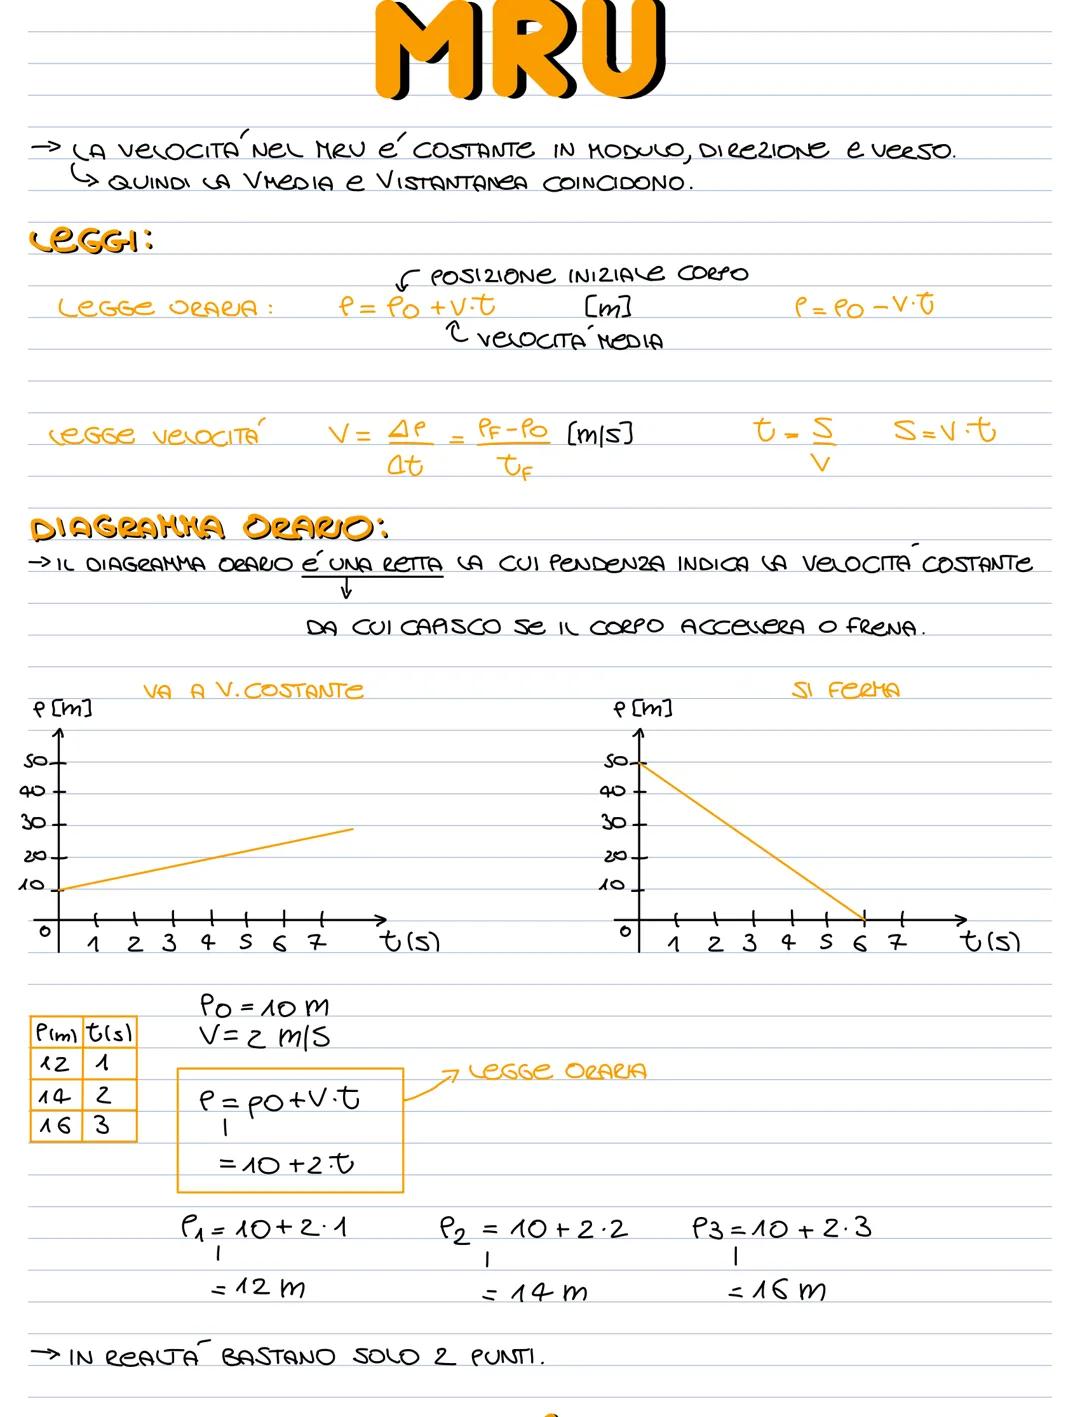 MRU
→ LA VELOCITÁ NEL MRU É COSTANTE IN MODULO, DIREZIONE E VERSO.
↳ QUINDI LA VMEDIA E VISTANTANEA COINCIDONO.
LEGGI:
POSIZIONE INIZIALE CORPO
LEGGE ORARIA: P = P0 + V·t [m] P = P0 - V·t
VELOCITÁ MEDIA
LEGGE VELOCITÁ V = ΔP/Δt = (PF - P0)/tF [m/s] t = S/V S = V·t
DIAGRAMMA ORARIO:
→ IL DIAGRAMMA ORARIO É UNA RETTA LA CUI PENDENZA INDICA LA VELOCITÁ COSTANTE
↓
DA CUI CAPISCO SE IL CORPO ACCELLERA O FRENA.
VA A V. COSTANTE
P [m]
50
40
30
20
10
0
1 2 3 4 5 6 7 t(s)
SI FERMA
P [m]
50
40
30
20
10
0
1 2 3 4 5 6 7 t(s)
P(m) t(s)
12 1
14 2
16 3
P0 = 10 m
V = 2 m/s
P = P0 + V·t
= 10 + 2·t
→ LEGGE ORARIA
P1 = 10 + 2·1
= 12 m
P2 = 10 + 2·2
= 14 m
P3 = 10 + 2·3
= 16 m
→ IN REALTÁ BASTANO SOLO 2 PUNTI.